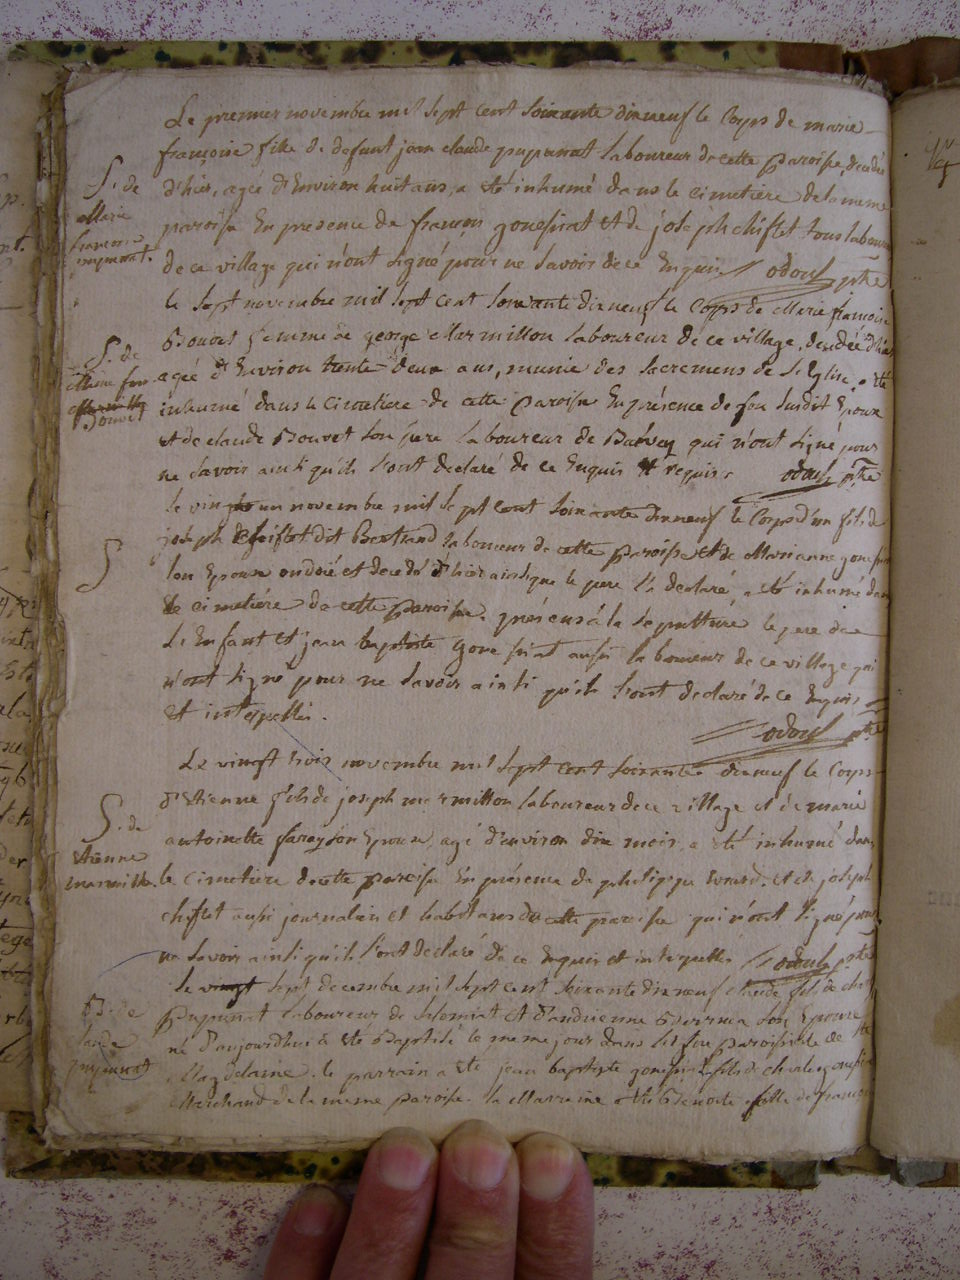 Le premier novembre mil sept cent soixante dixneuf le Corps de marie
françoise fille de defunt jean claude pupunat laboureur de cette paroisse, decedée
d'hier, agée d'Environ huit ans, a eté inhumé dans le cimetiere de la meme
paroisse En presence de françois gonessiat et de joseph chiflet tous laboureurs
de ce village qui n'ont signé pour ne savoir de ce Enquis odoul ptre
S. de
Marie
françoise
pupunat.
le sept novembre mil sept cent soixante dixneuf le Corps de Marie françoise
Bouvet femme de george Marmillon laboureur de ce village, decedée d'hier
agée d'Environ trente deux ans, munie des sacremens de l'Eglise, a eté
inhumé dans le cimetiere de cette paroisse En présence de son susdit Epoux
et de claude Bouvet son pere laboureur de qui n'ont signé pour
ne savoir ainsi qu'ils l'ont declaré de ce Enquis et requis. odoul ptre
S. de
Marie fran
Bouvet
le vingt un novembre mil sept cent soixante dixneuf le Corps d'un fils de
joseph chiflet dit Bertrand laboureur de cette paroisse et de Marianne gonessiat
son Epouse ondoié et decedé d'hier ainsi que le pere l'a declaré, a eté inhumé dans
le cimetiére de cette paroisse. présens à la sepulture le pere de
L'Enfant et jean baptiste gonessiat aussi laboureur de ce village qui
n'ont signé pour ne savoir ainsi qu'ils l'ont declaré de ce Enquis
et interpellés.
odoul ptre
S
Le vingt trois novembre mil sept cent soixante dixneuf le Corps
d'Etienne fils de joseph marmillon laboureur de ce village et de marie
antoinette son Epouse, agé d'environ dix mois, a eté inhumé dans
le cimetiere de cette paroisse En présence de philippe et de joseph
chiflet aussi journalier et habitants de cette paroisse qui n'ont signé pour
ne savoir ainsi qu'ils l'ont declaré de ce Enquis et interpellés odoul ptre
S. de
Etienne
marmillon
le vingt sept decembre mil sept cent soixante dixneuf claude fils de
Pupunat laboureur de et d'andrienne son Epouse
né d'aujourdhui à eté Baptisé le meme jour dans l'Eglise paroissiale de Ste
Magdelaine. le parrain a eté jean baptiste gonessiat fils de charles gonessiat
Marchand de la meme paroisse. la Marraine a eté Benoite fille de françois
B. de
laude
pupunat